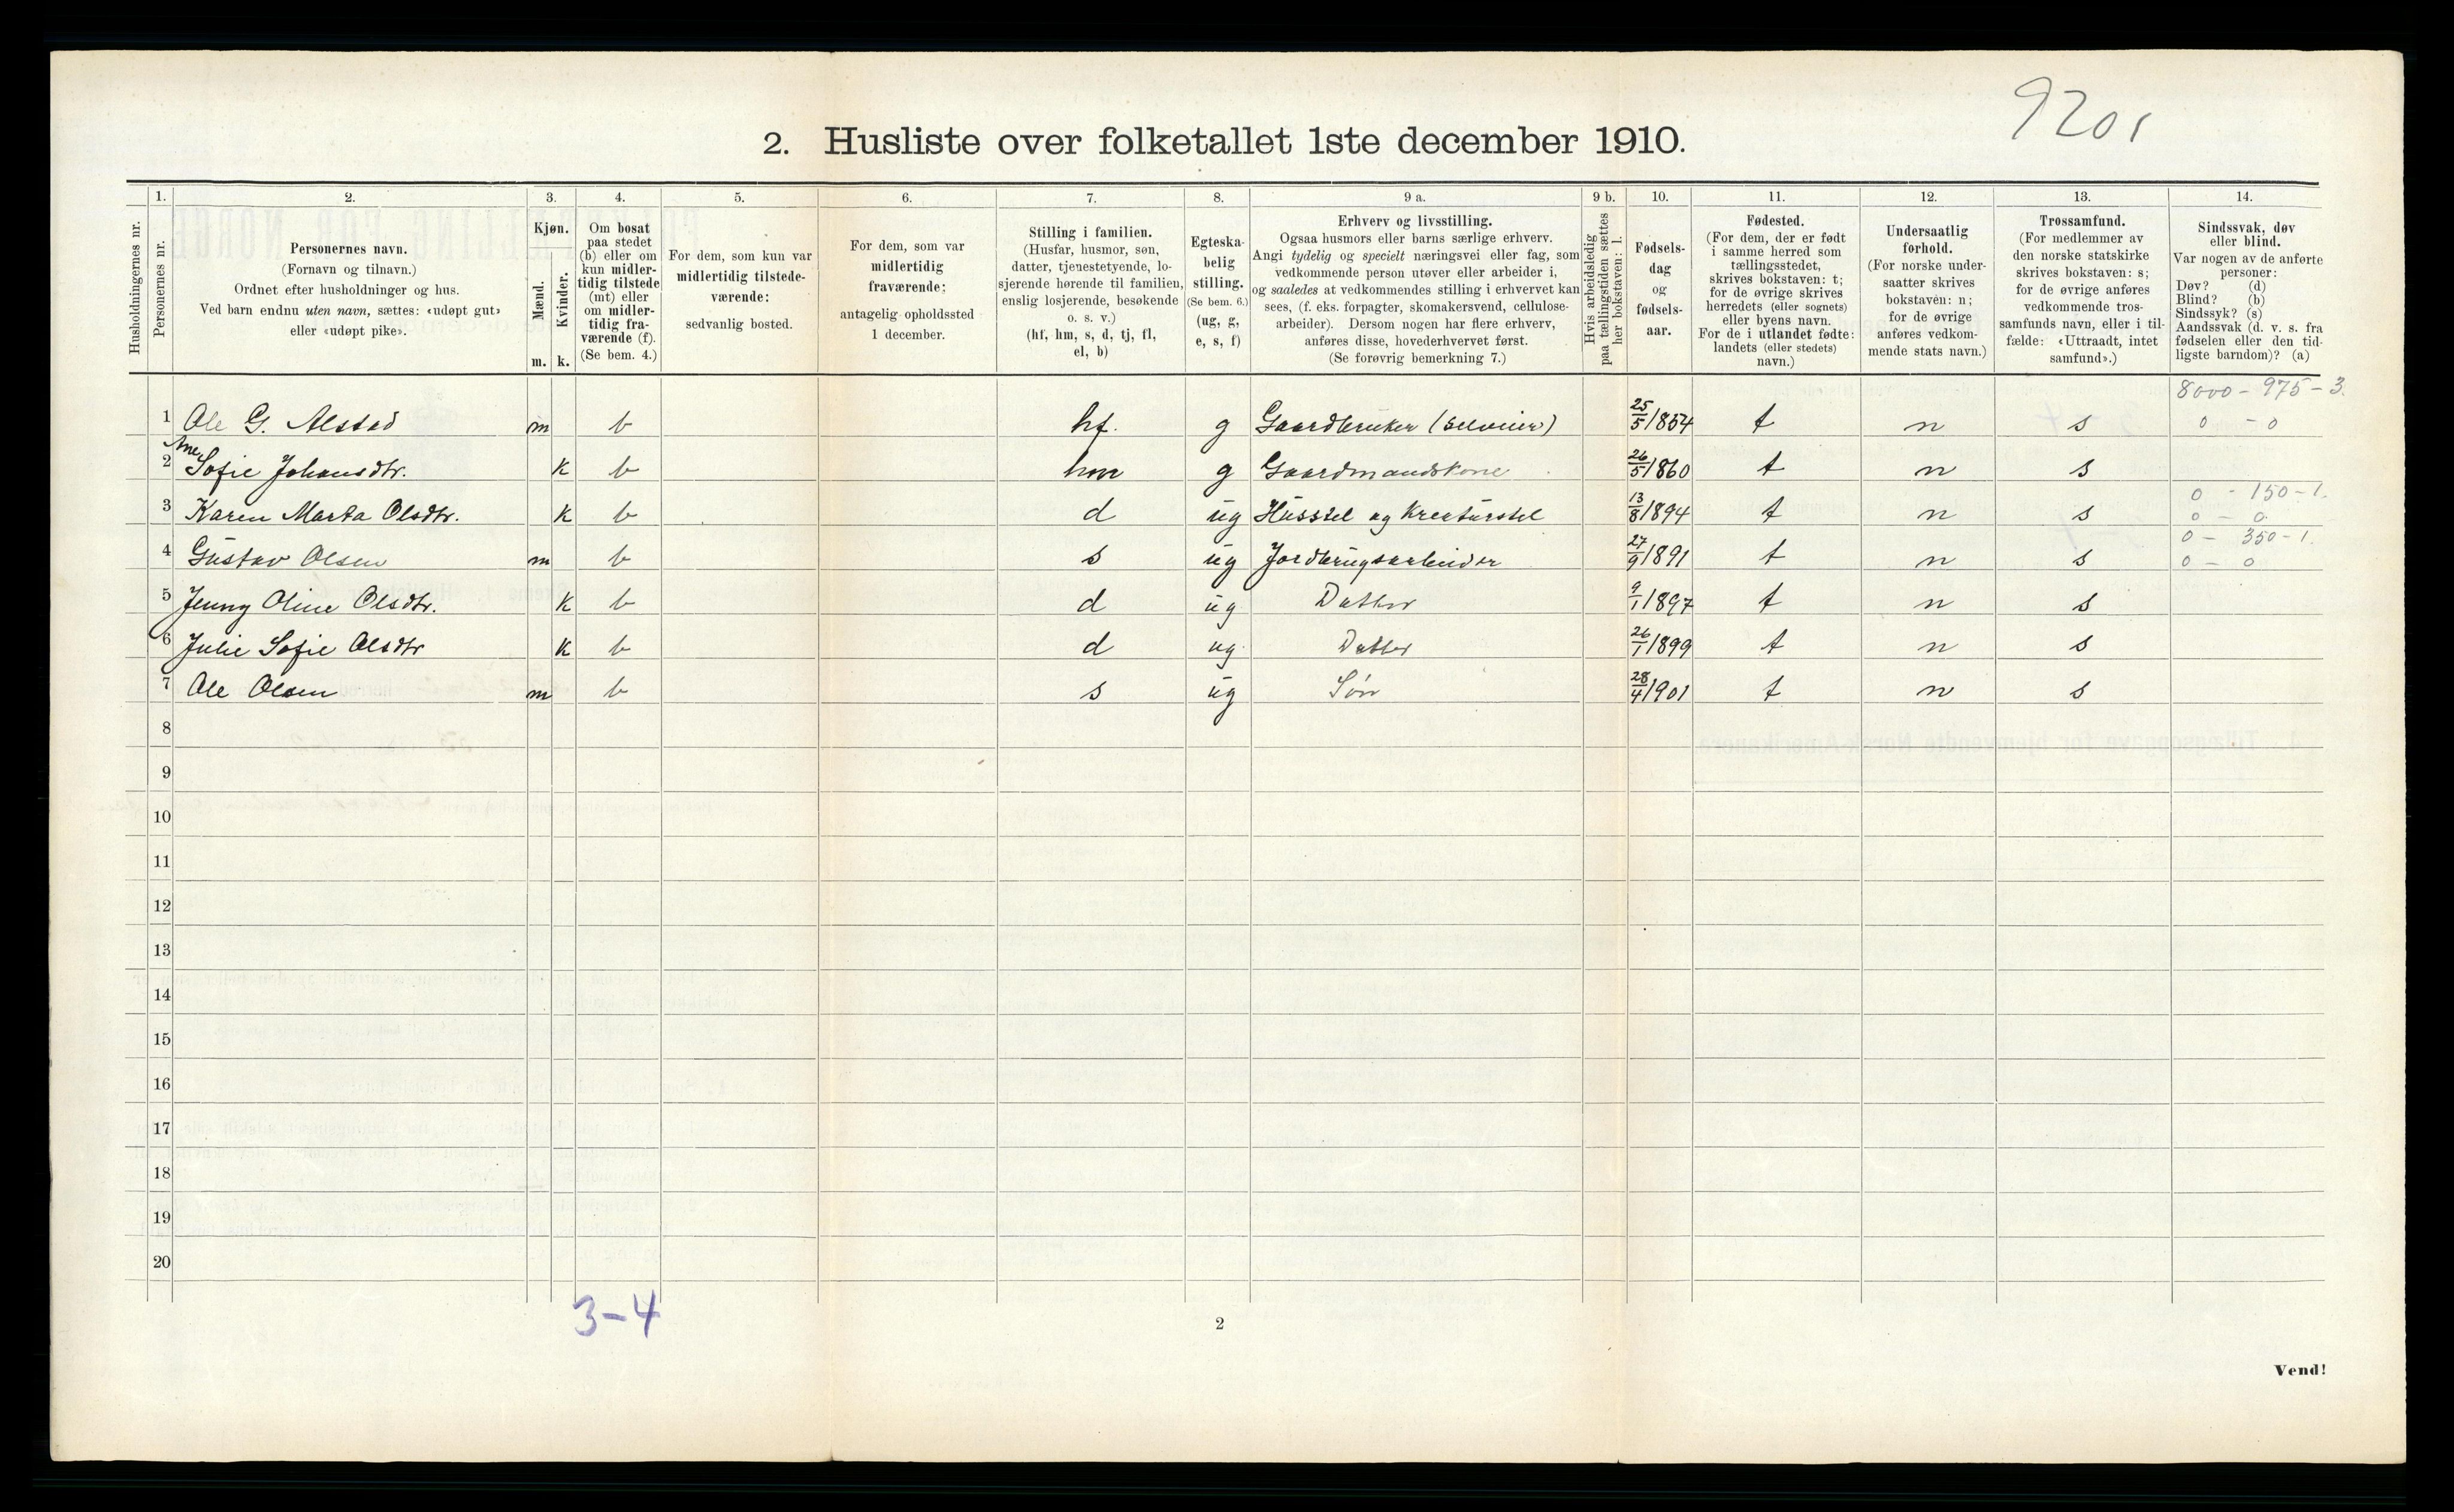 9201
2. Husliste over folketallet 1ste december 1910.
Husholdningernes nr.
1.
Personernes nr.
2.
Personernes navn.
(Fornavn og tilnavn.)
Ordnet efter husholdninger og hus.
Ved barn endnu uten navn, sættes: «udøpt gut»
eller «udøpt pike».
3.
Kjøn.
Mænd.
Kvinder.
m. k.
4.
Om bosat
paa stedet
(b) eller om
kun midler-
tidig tilstede
(mt) eller
om midler-
tidig fra-
værende (f).
(Se bem. 4.)
5.
For dem, som kun var
midlertidig tilstede-
værende:
sedvanlig bosted.
6.
For dem, som var
midlertidig
fraværende:
antagelig opholdssted
1 december.
7.
Stilling i familien.
(Husfar, husmor, søn,
datter, tjenestetyende, lo-
sjerende hørende til familien,
enslig losjerende, besøkende
o. s. v.)
(hf, hm, s, d, tj, fl,
el, b)
8.
Egteska-
belig
stilling.
(Se bem. 6.)
(ug, g,
e, s, f)
9 a.
Erhverv og livsstilling.
Ogsaa husmors eller barns særlige erhverv.
Angi tydelig og specielt næringsvei eller fag, som
vedkommende person utøver eller arbeider i,
og saaledes at vedkommendes stilling i erhvervet kan
sees, (f. eks. forpagter, skomakersvend, cellulose-
arbeider). Dersom nogen har flere erhverv,
anføres disse, hovederhvervet først.
(Se forøvrig bemerkning 7.)
9 b.
Hvis arbeidsledig
paa tællingstiden sættes
her bokstaven: l.
10.
Fødsels-
dag
og
fødsels-
aar.
11.
Fødested.
(For dem, der er født
i samme herred som
tællingsstedet,
skrives bokstaven: t;
for de øvrige skrives
herredets (eller sognets)
eller byens navn.
For de i utlandet fødte:
landets (eller stedets)
navn.)
12.
Undersaatlig
forhold.
(For norske under-
saatter skrives
bokstaven: n;
for de øvrige
anføres vedkom-
mende stats navn.)
13.
Trossamfund.
(For medlemmer av
den norske statskirke
skrives bokstaven: s;
for de øvrige anføres
vedkommende tros-
samfunds navn, eller i til-
fælde: «Uttraadt, intet
samfund».)
14.
Sindssvak, døv
eller blind.
Var nogen av de anførte
personer:
Døv? (d)
Blind? (b)
Sindssyk? (s)
Aandssvak (d. v. s. fra
fødselen eller den tid-
ligste barndom)? (a)
8000 - 975 - 3.
1 Ole G. Alstad m b hf. g Gaardbruker (selveier) 25/5 1854 t n s 0 - 0
Ane
2 Sofie Johansdtr. k b hm g Gaardmandskone 26/5 1860 t n s
0 - 150 - 1.
3 Karen Marta Olsdtr. k b d ug Husstel og Kreaturstel 13/8 1894 t n s 0 - 0.
0 - 350 - 1.
4 Gustav Olsen m b s ug Jordbrugsarbeider 27/9 1891 t n s 0 - 0
5 Jenny Oline Olsdtr. k b d ug Datter 9/1 1897 t n s
6 Julie Sofie Olsdtr k b d ug Datter 26/1 1899 t n s
7 Ole Olsen m b s ug Søn 28/4 1901 t n s
8
9
10
11
12
13
14
15
16
17
18
19
20
3-4
2
Vend!